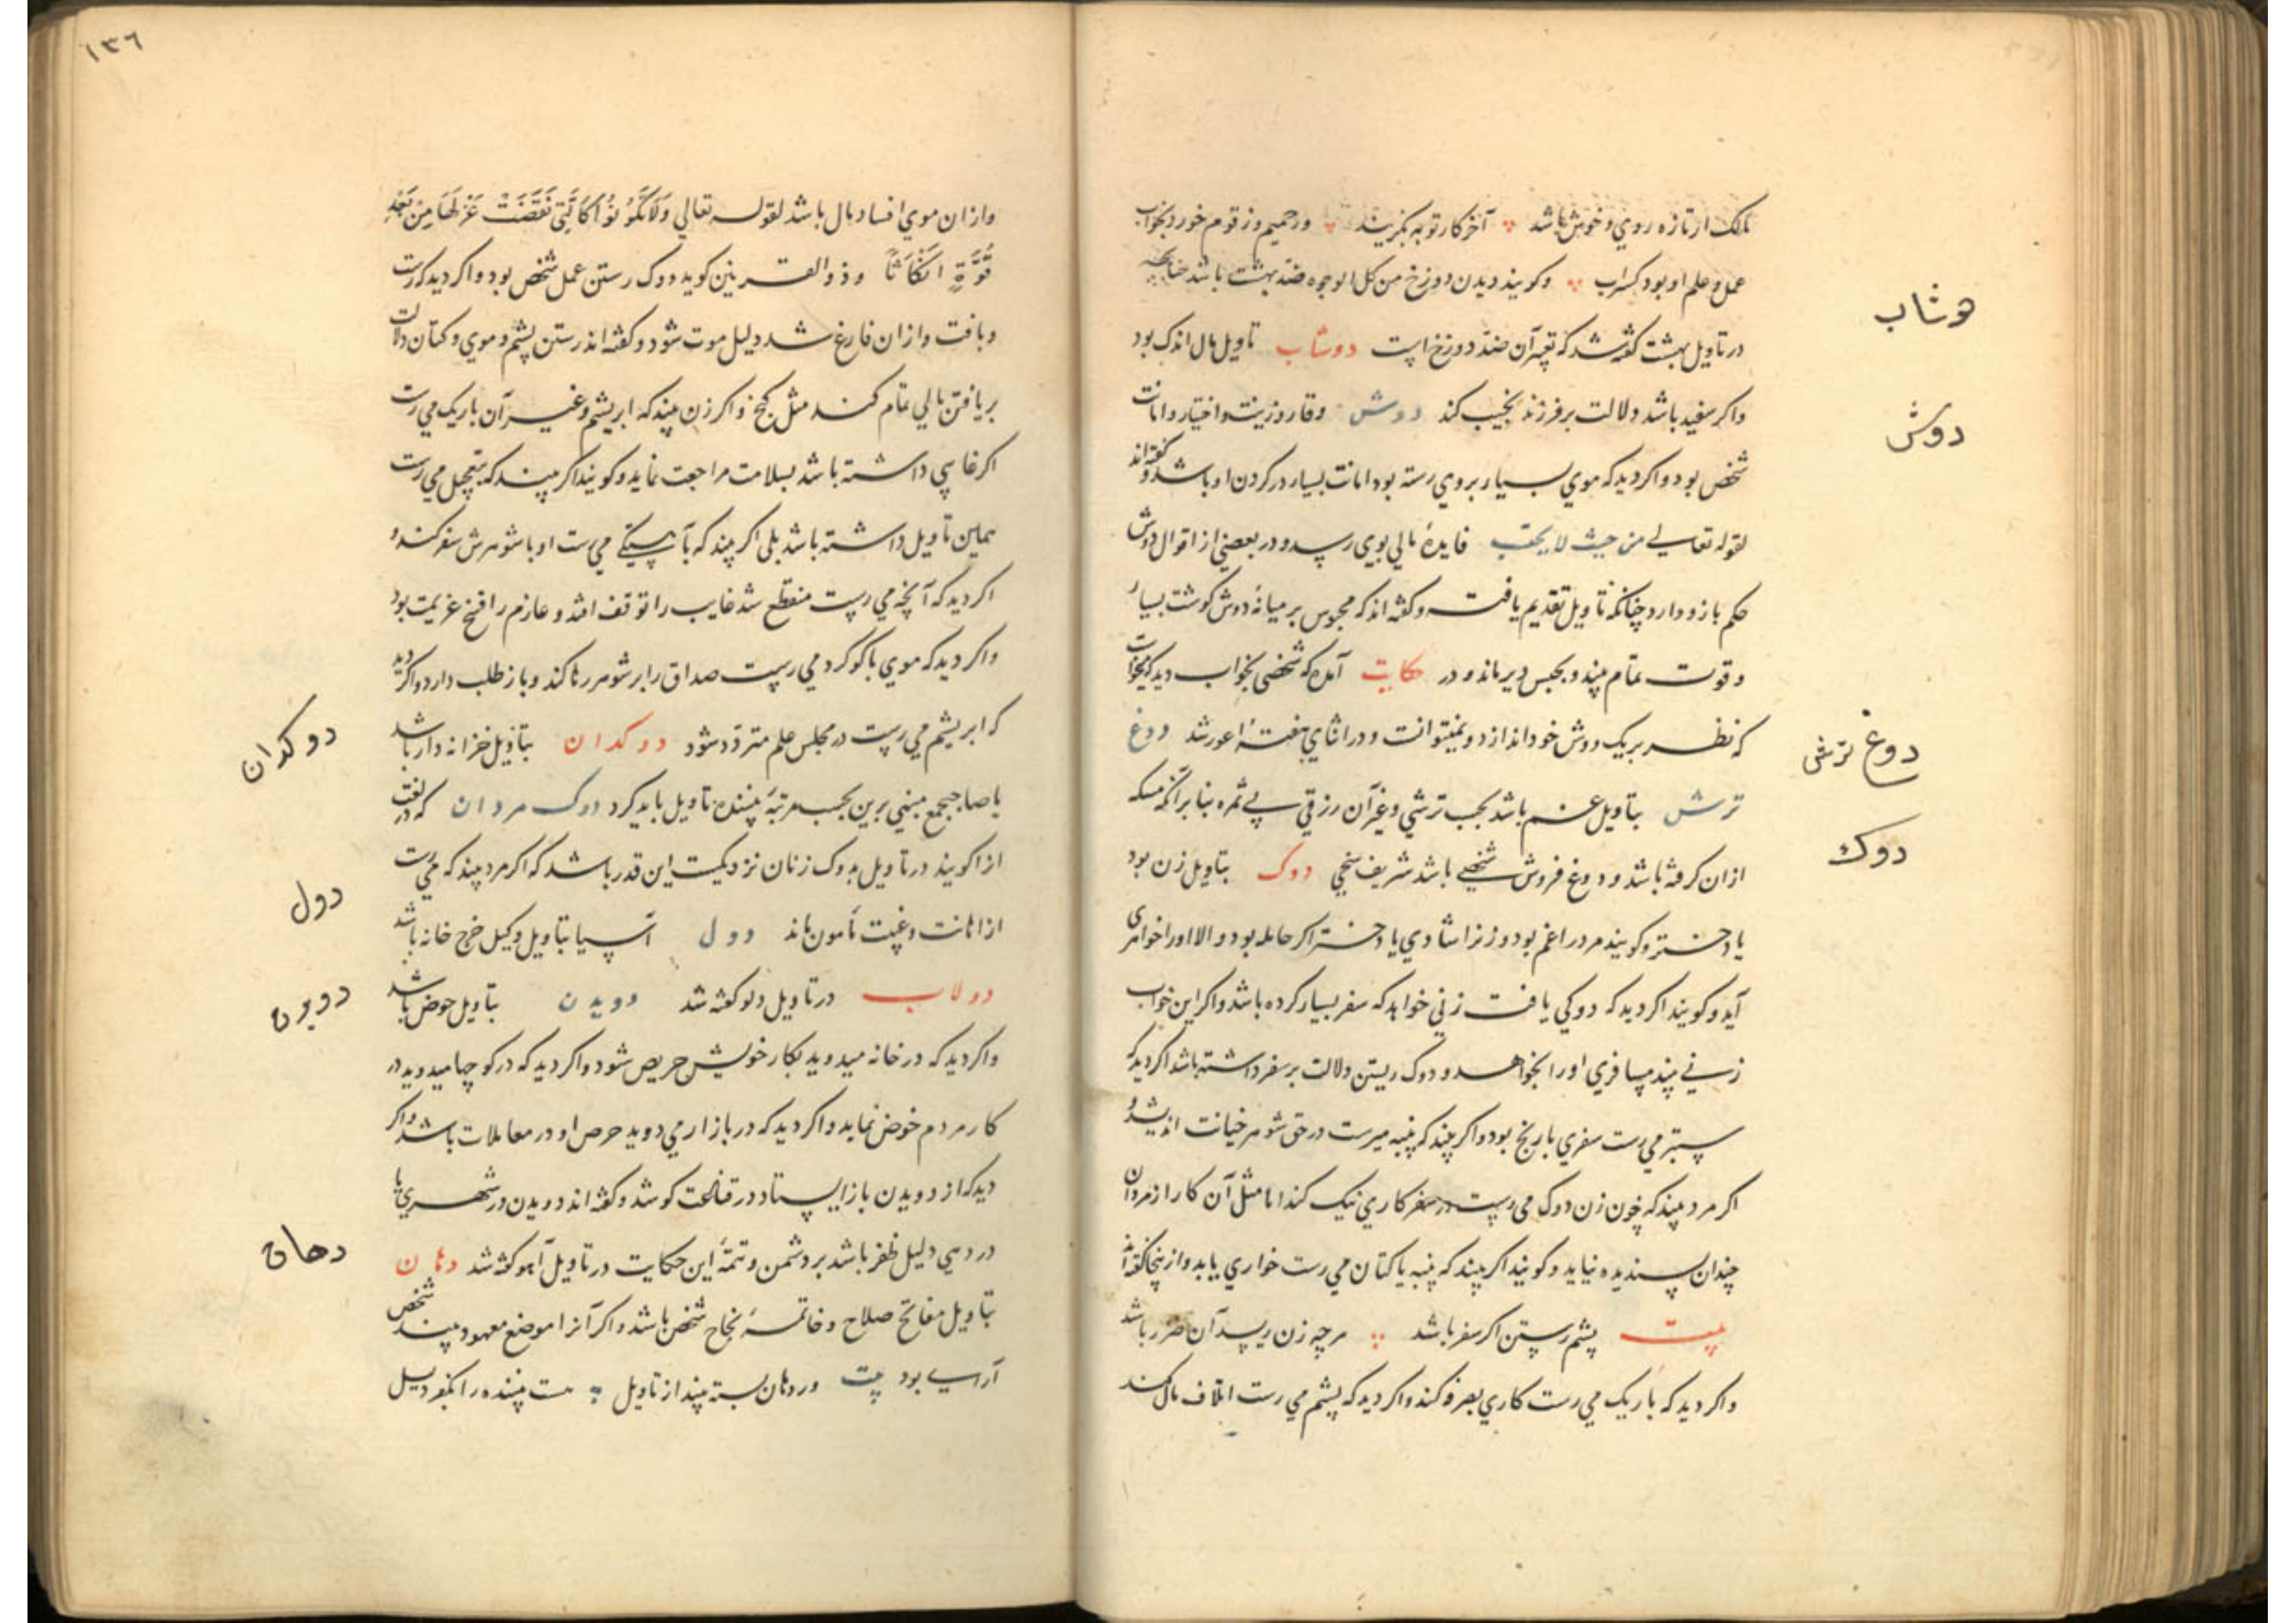 مالک ار تازه روي و خوش باشد آخر کار توبه بگزیند ور حمیم و زقوم خورد بخواب
عمل و علم او بود کسراب و کویند دیدن دوزخ من کل الوجوه ضد بهشت باشد چنانچه
در تاویل بهشت کفته شد که تعبیر آن ضد دوزخ است دوشاب تاویل مال اندک بود
واکر سفید باشد دلالت بر فرزند نجیب کند دوش وقار و زینت و اختیار و امانت
شخص بود و اکر دید که موي بسیار بروي رسته بود امانت بسیار در کردن او باشد و کفته‌اند
لقوله تعالی من حیث لا یحتسب فایدهٔ مالي بوي رسد و در بعضي از اقوال دوش
حکم بازو دارد چنانکه تاویل تقدیم یافت و کفته اند که محبوس بر میانهٔ دوش کوشت بسیار
و قوت تمام بیند و بحبس دیر ماند و در حکایت آمده که شخصی بخواب دید که میخواست
که نظر بر یک دوش خود اندازد و نمیتوانست و در اثناي هفتهٔ اعور شد دوغ
ترش بتاویل غم باشد بحسب ترشي و غیر آن رزقي بي ثمره بنا بر آنکه مسکه
ازان کرفته باشد و دوغ فروش شخصي باشد شریف سخي دوک بتاویل زن بود
یا دختر و کویند مرد را غم بود و زنرا شادي یا دختر اکر حامله بود و الا اورا خواهري
آید و کویند اکر دید که دوکي یافت زني خواهد که سفر بسیار کرده باشد و اکر این خواب
زني بیند مسافري اورا بخواهد و دوک ریستن دلالت بر سفر داشته باشد اکر دید که
سبتر مي رست سفري با رنج بود و اکر بیند که پنبه میرست در حق شوهر خیانت اندیشد و
اکر مرد بیند که چون زن دوک مي رست در سفر کاري نیک کند اما مثل آن کار از مردان
چندان پسندیده نیاید و کویند اکر بیند که پنبه یا کتان مي رست خواري یابد و از ینجا کفته‌اند
بیت پشم رستن اکر سفر باشد هرچه زن ریسد آن ضرر باشد
واکر دید که باریک مي رست کاري بصرفه کند واکر دید که پشم مي رست اتلاف مال کند
دوشاب
دوش
دوغ ترش
دوک
١٣٦
وازان موي افساد مال باشد لقوله تعالي وَلَا تَكُونُوا كَالَّتِي نَقَضَتْ غَزْلَهَا مِن بَعْدِ
قُوَّةٍ أَنكَاثًا و ذو القرنین کوید دوک رستن عمل شخص بود و اکر دید که رست
و بافت و ازان فارغ شد دلیل موت شود و کفته اند رستن پشم و موي و کتان دلالت
بر یافتن مالي تمام کند مثل کنج و اکر زن بیند که ابریشم و غیر آن باریک مي رست
اکر غایبي داشته باشد بسلامت مراجعت نماید و کویند اکر بیند که بتعجیل مي رست
همین تاویل داشته باشد بلی اکر بیند که بآهستکي مي رست او با شوهرش سفر کند و
اکر دید که آنچه مي رست منقطع شد غایب را توقف افتد و عازم را فسخ عزیمت بود
واکر دید که موي با کوکرد مي رست صداق را بر شوهر رها کند و باز طلب دارد و اکر دید
که ابریشم مي رست در مجلس علم متردد شود دوکدان بتاویل خزانه دار باشد
یا صاحبجمع مبني برین بحسب مرتبهٔ بیننده تاویل باید کرد دوک مردان که در لغت
ازا کویند در تاویل بدوک زنان نزدیکست این قدر باشد که اکر مرد بیند که مي رست
از اهانت و غیبت مأمون ماند دول آسیا بتاویل وکیل خرج خانه باشد
دولاب در تاویل دلو کفته شد دویدن بتاویل حوض باشد
واکر دید که در خانه میدوید بکار خویش حریص شود و اکر دید که در کوچها میدوید در
کار مردم خوض نماید و اکر دید که در بازار مي دوید حرص او در معاملات باشد و اکر
دید که از دویدن باز ایستاد در قناعت کوشد و کفته اند دویدن در شهري یا
در دهي دلیل ظفر باشد بر دشمن و تتمهٔ این حکایت در تاویل آهو کفته شد دهان
بتاویل مفاتح صلاح و خاتمهٔ نجاح شخص باشد و اکر آنرا موضع معهود بیند شخص
آراسته بود بیت ور دهان بسته بیند از تاویل هست بیننده را بکفر دلیل
دوکدان
دول
دویدن
دهان